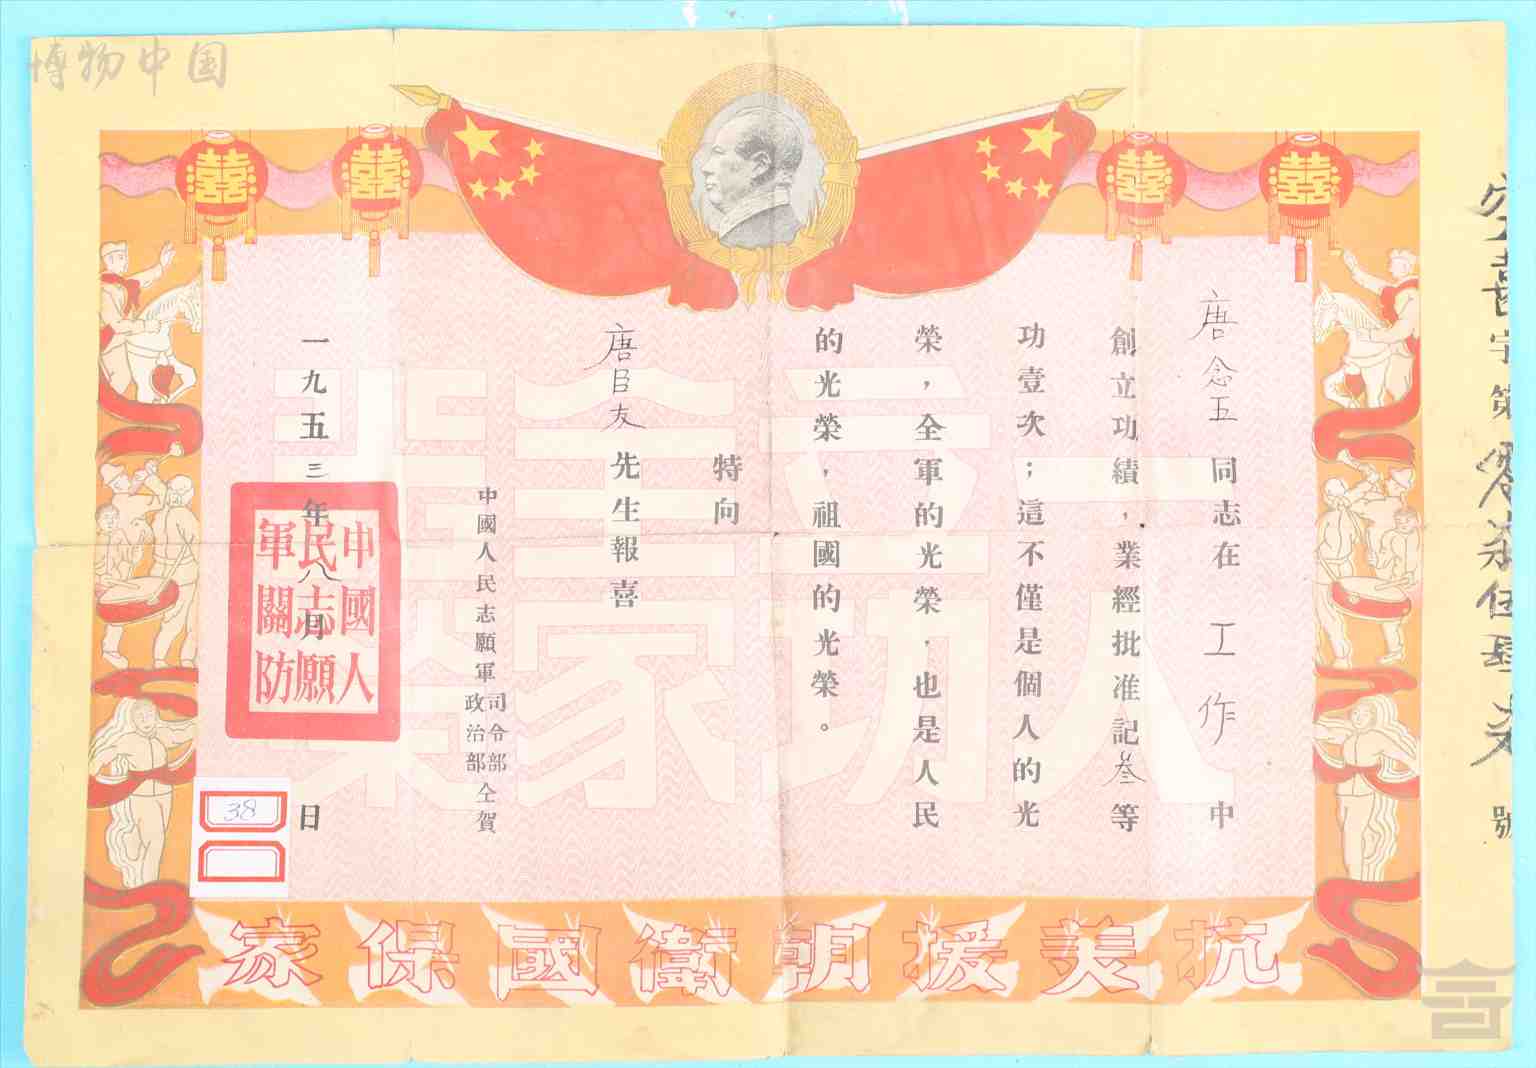 博物中国
唐念五同志在工作中
創立功績，業經批准記叁等
功壹次；這不僅是個人的光
榮，全軍的光榮，也是人民
的光榮，祖國的光榮。
特向
唐臣友先生報喜
中國人民志願軍司令部政治部仝賀
一九五三年八月日
中國人民志願軍關防
一人功立全家光榮
抗美援朝衛國保家
喜字第
號
囍
囍
囍
囍
38